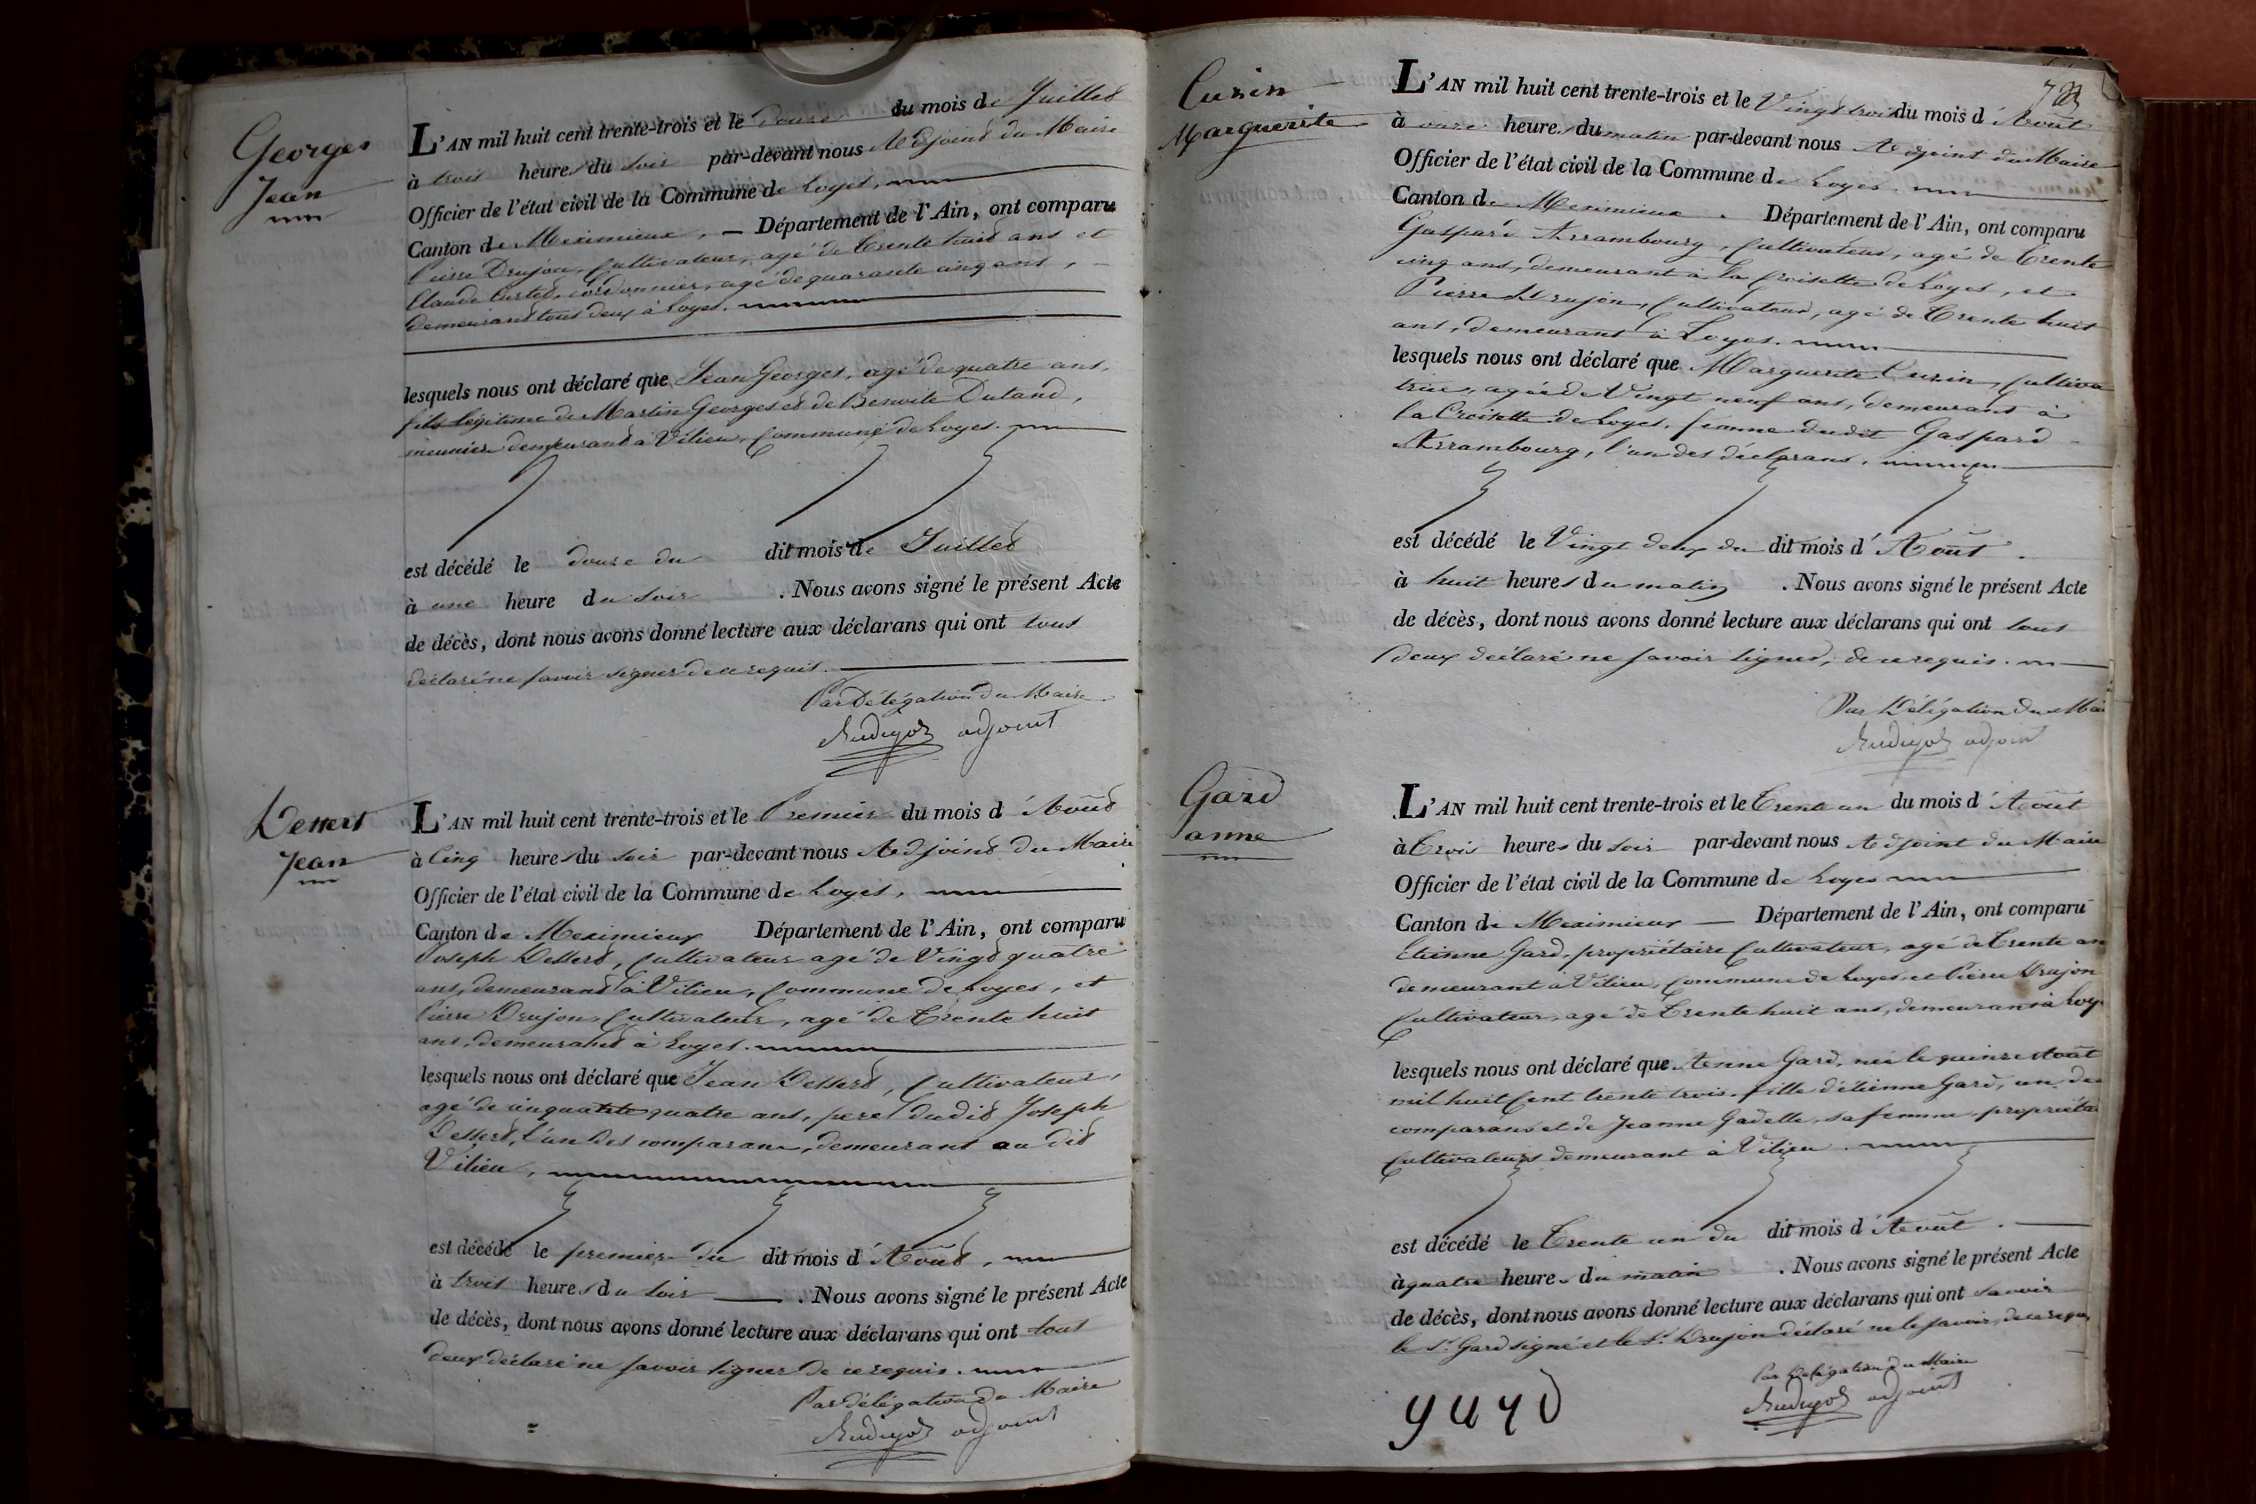 Georges
Jean
L'AN mil huit cent trente-trois et le douze du mois de Juillet
à trois heures du soir par-devant nous Adjoint du Maire
Officier de l'état civil de la Commune de Loyes,
Canton de Meximieux, — Département de l'Ain, ont comparu
Pierre Drujon, Cultivateur, agé de Trente huit ans et
Claude Curtet, cordonnier, agé de quarante cinq ans,
demeurant tous deux à Loyes.
lesquels nous ont déclaré que Jean Georges, agé de quatre ans,
fils légitime de Martin Georges et de Benoite Dutand,
meunier demeurant à Vilieu, Commune de Loyes.
est décédé le douze du dit mois de Juillet
à une heure du soir . Nous avons signé le présent Acte
de décès, dont nous avons donné lecture aux déclarans qui ont tous
déclaré ne savoir signer de ce requis.
Par Délégation du Maire
adjoint
Dessert
Jean
L'AN mil huit cent trente-trois et le Premier du mois d'Août
à Cinq heures du soir par-devant nous Adjoint du Maire
Officier de l'état civil de la Commune de Loyes,
Canton de Meximieux Département de l'Ain, ont comparu
Joseph Dessert, Cultivateur agé de Vingt quatre
ans, demeurant à Vilieu, Commune de Loyes, et
Pierre Drujon, Cultivateur, agé de Trente huit
ans, demeurant à Loyes.
lesquels nous ont déclaré que Jean Dessert, Cultivateur,
agé de cinquante quatre ans, pere dudit Joseph
Dessert, l'un des comparans, demeurant au dit
Vilieu,
est décédé le premier du dit mois d'Août,
à trois heures du soir — . Nous avons signé le présent Acte
de décès, dont nous avons donné lecture aux déclarans qui ont tous
deux déclaré ne savoir signer de ce requis.
Par délégation du Maire
adjoint
Cuzin
Marguerite
L'AN mil huit cent trente-trois et le Vingt trois du mois d'Août
à onze heures du matin par-devant nous Adjoint du Maire
Officier de l'état civil de la Commune de Loyes.
Canton de Meximieux. Département de l'Ain, ont comparu
Gaspard Arrambourg, Cultivateur, agé de Trente
cinq ans, demeurant à la Croisette de Loyes, et
Pierre Drujon, Cultivateur, agé de Trente huit
ans, demeurant à Loyes.
lesquels nous ont déclaré que Marguerite Cuzin, Cultiva
trice, agée de Vingt neuf ans, demeurant à
la Croisette de Loyes, femme dudit Gaspard
Arrambourg, l'un des déclarans,
est décédé le Vingt deux du dit mois d'Août.
à huit heures du matin . Nous avons signé le présent Acte
de décès, dont nous avons donné lecture aux déclarans qui ont tous
deux déclaré ne savoir signer, de ce requis.
Par Délégation du Mai
adjoint
Gard
anne
L'AN mil huit cent trente-trois et le Trente un du mois d'Août
à Trois heures du soir par-devant nous Adjoint du Maire
Officier de l'état civil de la Commune de Loyes
Canton de Meximieux — Département de l'Ain, ont comparu
Etienne Gard, propriétaire Cultivateur, agé de Trente an
demeurant à Vilieu, Commune de Loyes, et Pierre Drujon
Cultivateur, agé de Trente huit ans, demeurant à Loye
lesquels nous ont déclaré que Anne Gard, née le quinze Août
mil huit Cent trente trois, fille d'étienne Gard, un des
comparans et de Jeanne Gadelle, sa femme, propriétai
Cultivateurs demeurant à Vilieu.
est décédé le Trente un du dit mois d'Août.
à quatre heures du matin . Nous avons signé le présent Acte
de décès, dont nous avons donné lecture aux déclarans qui ont savoir
le Sr. Gard signé et le Sr. Drujon déclaré ne le savoir, de ce requi
Par Délégation du Maire
adjoint
gard